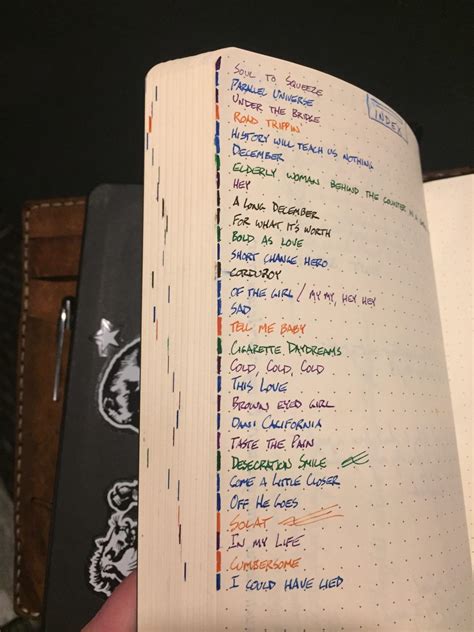 INDEX
SOUL TO SQUEEZE
PARALLEL UNIVERSE
UNDER THE BRIDGE
ROAD TRIPPIN'
HISTORY WILL TEACH US NOTHING
DECEMBER
ELDERLY WOMAN BEHIND THE COUNTER IN A
HEY
A LONG DECEMBER
FOR WHAT IT'S WORTH
BOLD AS LOVE
SHORT CHANGE HERO
CORDUROY
OF THE GIRL / MY MY, HEY HEY
SAD
TELL ME BABY
CIGARETTE DAYDREAMS
COLD, COLD, COLD
THIS LOVE
BROWN EYED GIRL
DANI CALIFORNIA
TASTE THE PAIN
DESECRATION SMILE
COME A LITTLE CLOSER
OFF HE GOES
SOLAT
IN MY LIFE
CUMBERSOME
I COULD HAVE LIED